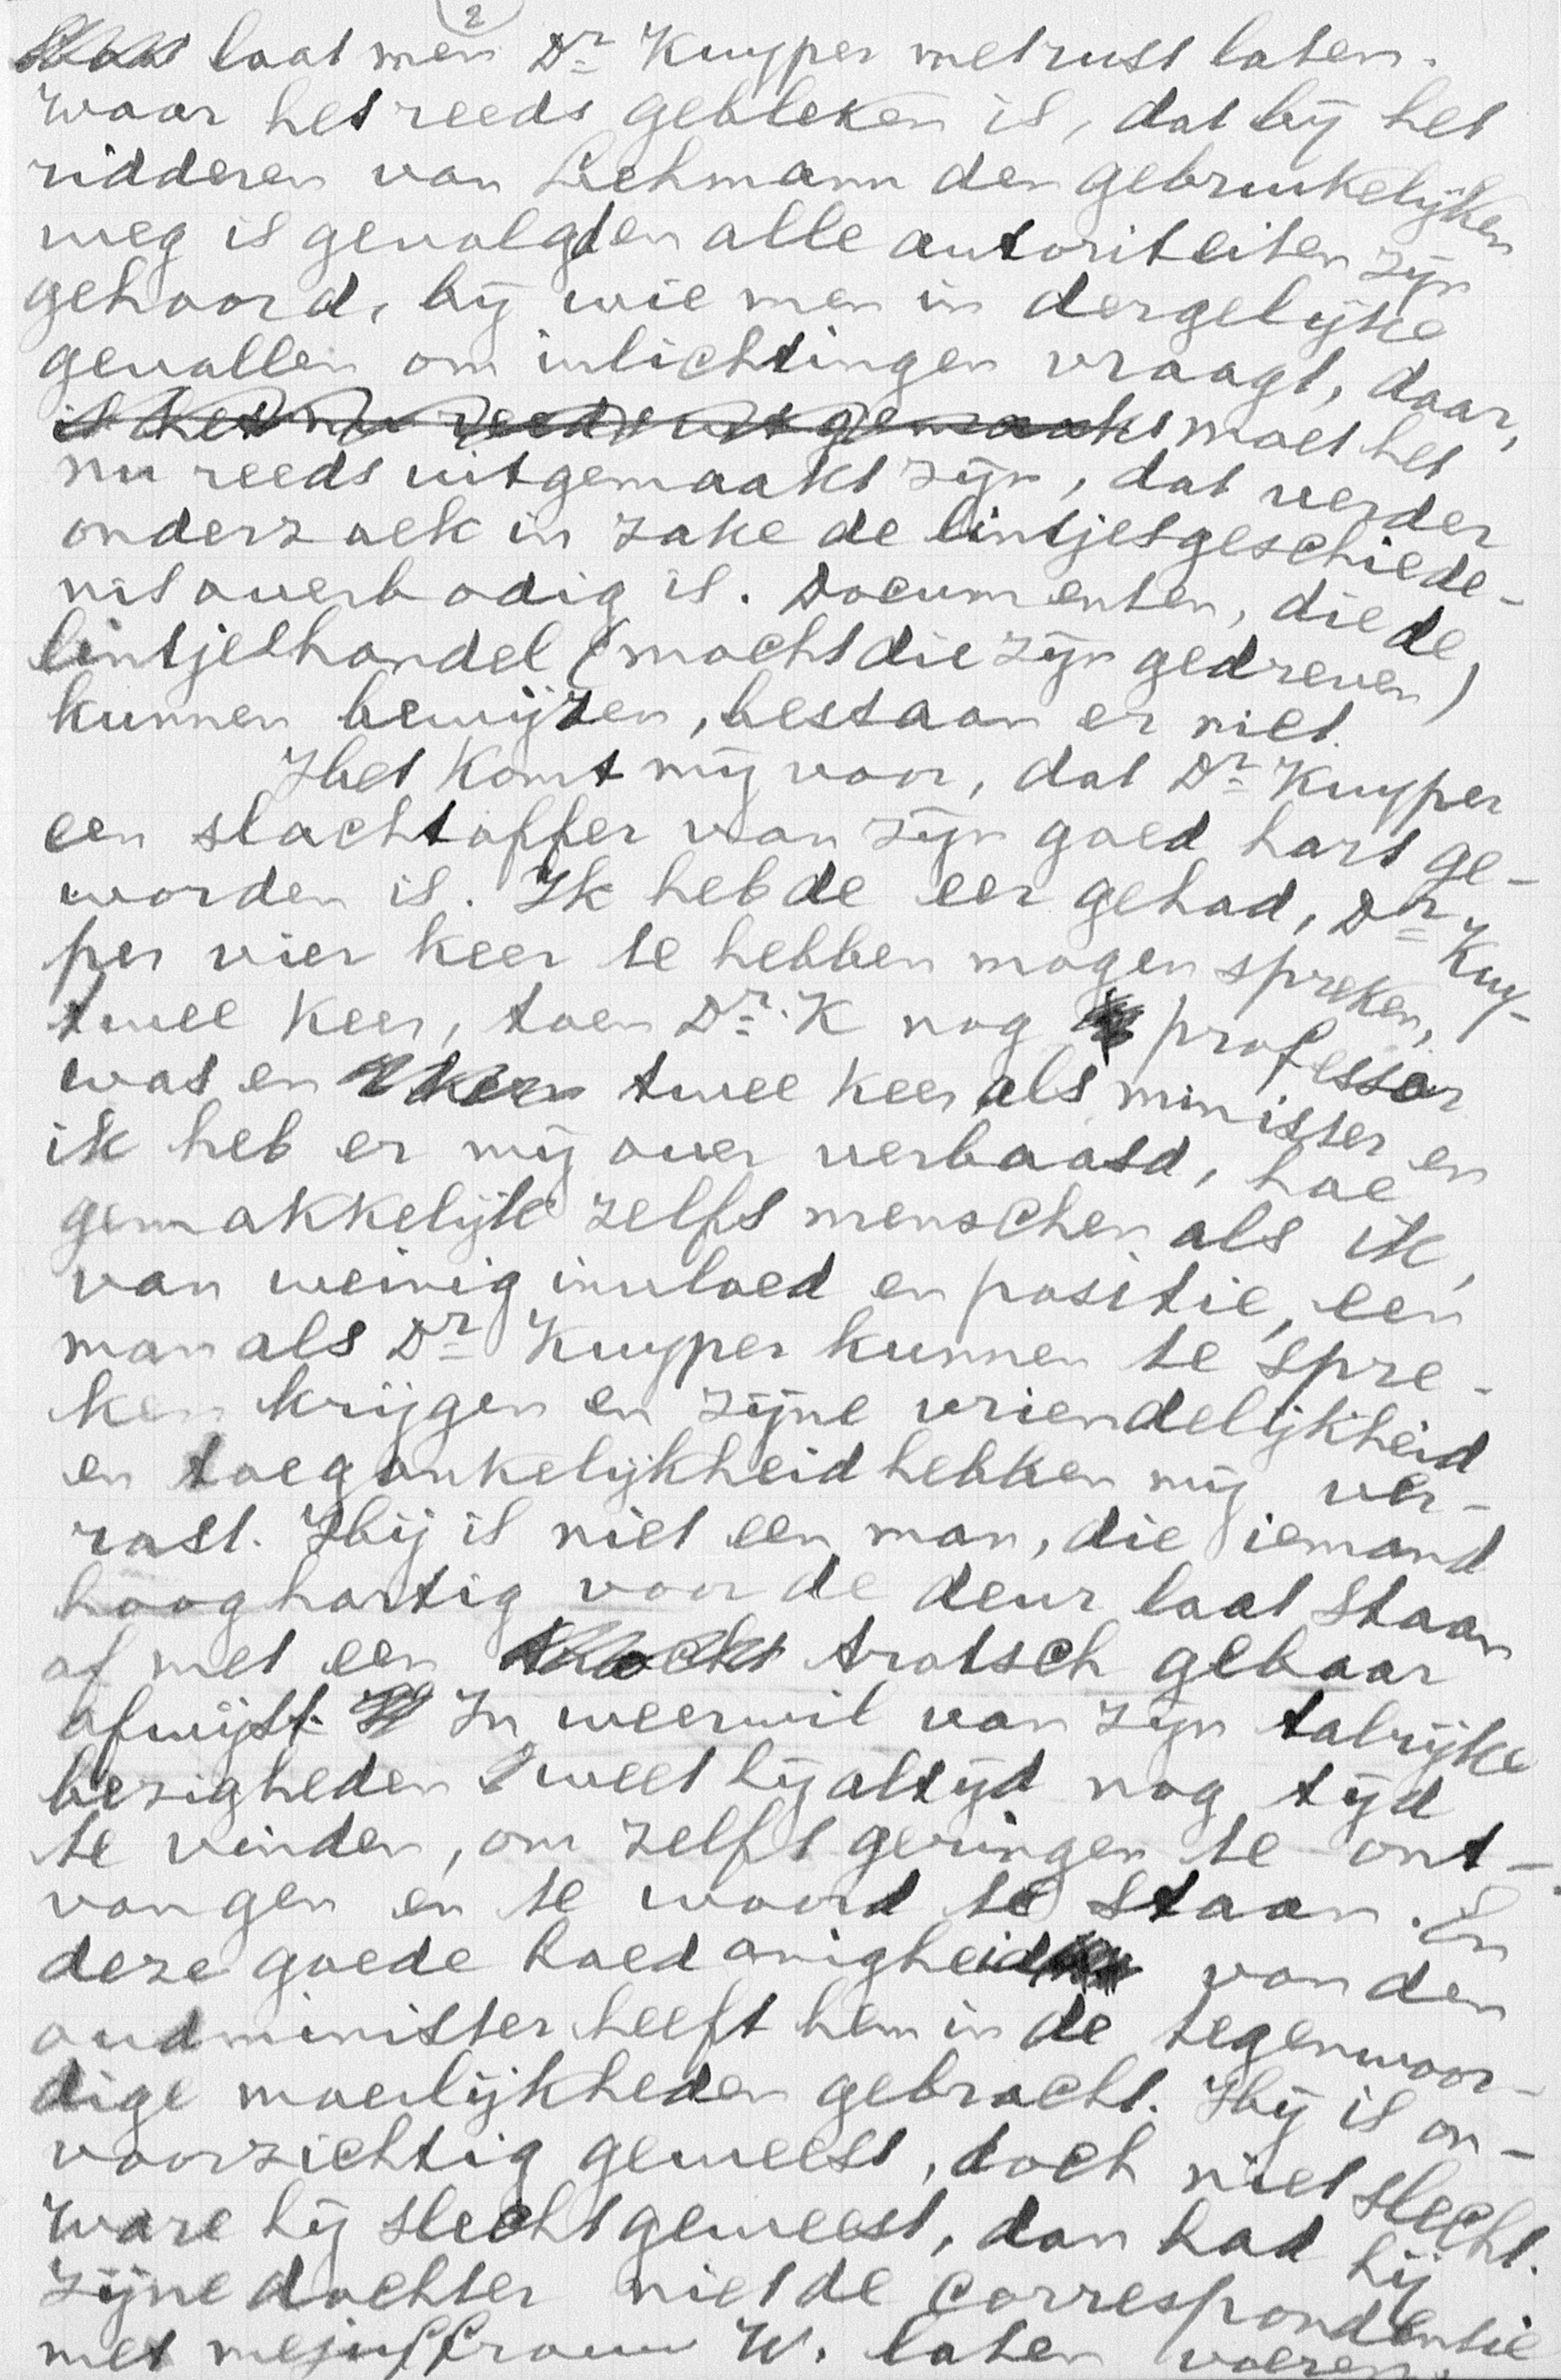 2
laat men Dr Kuyper met rust laten.
Waar het reeds gebleken is, dat bij het
ridderen van Lehmann den gebruikelijken
weg is gevolgd en alle autoriteiten zijn
gehoord, bij wie men in dergelijke
gevallen om inlichtingen vraagt, daar,
is het nu reeds uitgemaakt moet het
nu reeds uitgemaakt zijn, dat verder
onderzoek in zake de lintjesgeschiede-
nis overbodig is. Documenten, die de
lintjeshandel (mocht die zijn gedreven)
kunnen bewijzen, bestaan er niet.
Het komt mij voor, dat Dr Kuyper
een slachtoffer van zijn goed hart ge-
worden is. Ik heb de eer gehad, Dr Kuy-
per vier keer te hebben mogen spreken,
twee keer, toen Dr. K nog professor
was en 2 keer twee keer als minister en
ik heb er mij over verbaasd, hoe
gemakkelijk zelfs menschen als ik,
van weinig invloed en positie, een
man als Dr Kuyper kunnen te spre-
ken krijgen en zijne vriendelijkheid
en toegankelijkheid hebben mij ver-
rast. Hij is niet een man, die iemand
hooghartig voor de deur laat staan
of met een trotsch gebaar
afwijst. In weerwil van zijn talrijke
bezigheden weet hij altijd nog tijd
te vinden, om zelfs geringen te ont-
vangen en te woord te staan. En
deze goede hoedanigheid van den
oudminister heeft hem in de tegenwoor-
dige moeilijkheden gebracht. Hij is on-
voorzichtig geweest, doch niet slecht.
Ware hij slecht geweest, dan had hij
zijne dochter niet de correspondentie
met mejuffrouw W. laten voeren.